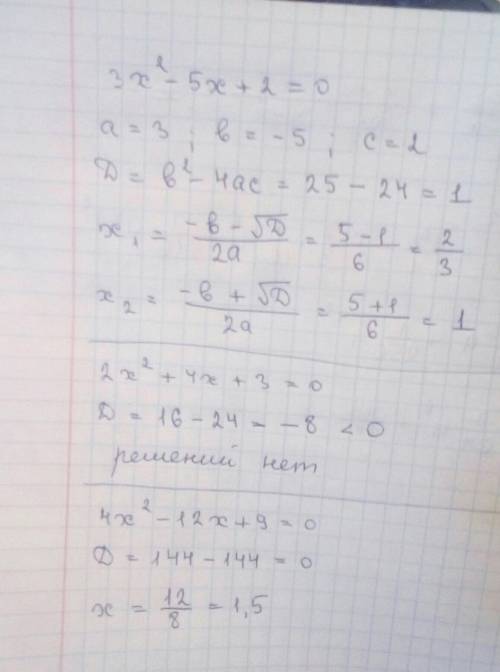 3x² - 5x + 2 = 0
a = 3 ; в = -5 ; c = 2
Д = в² - 4ac = 25 - 24 = 1
x₁ = (-в - √Д)/(2a) = (5 - 1)/6 = 2/3
x₂ = (-в + √Д)/(2a) = (5 + 1)/6 = 1
2x² + 4x + 3 = 0
Д = 16 - 24 = -8 < 0
решений нет
4x² - 12x + 9 = 0
Д = 144 - 144 = 0
x = 12/8 = 1,5